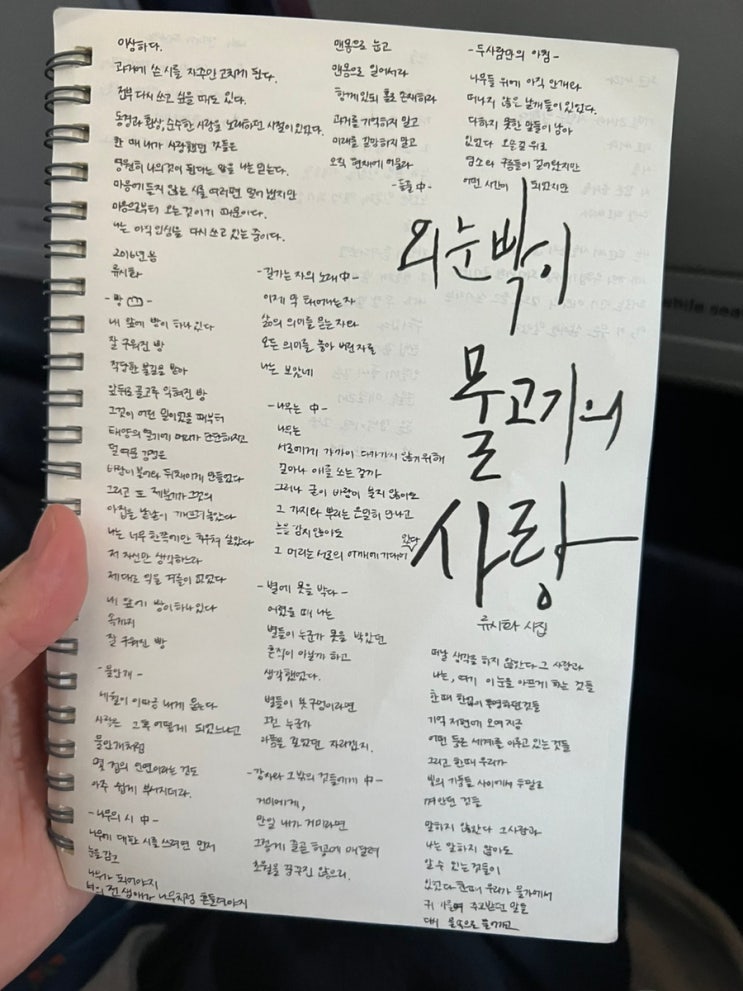 이상하다.
과거에 쓴 시를 자꾸만 고치게 된다.
전부 다시 쓰고 싶을 때도 있다.
동경과 환상, 순수한 사랑을 노래하던 시절이 있었다.
한 때 내가 사랑했던 것들은
영원히 나의것이 된다는 말을 나는 믿는다.
마음에 들지 않는 시를 여러편 덜어 냈지만
마음으로부터 오는 것이기 때문이다.
나는 아직 인생을 다시 쓰고 있는 중이다.
2016년 봄
류시화
- 빵 -
내 앞에 빵이 하나 있다
잘 구워진 빵
적당한 불길을 받아
앞뒤로 골고루 익혀진 빵
그것이 어린 밀이었을 때부터
태양의 열기에 머리가 단단해지고
덜 여문 감정은
바람이 불어와 뒤채이게 만들었다
그리고 또 제분기가 그것의
아집을 낱낱이 깨뜨려 놓았다
나는 너무 한쪽에만 치우쳐 살았다
저 자신만 생각하느라
제대로 익을 겨를이 없었다
내 앞에 빵이 하나 있다
속까지
잘 구워진 빵
- 물안개 -
세월이 이따금 내게 묻는다
사랑은 그 후 어떻게 되었느냐고
물안개처럼
몇 겁의 인연이라는 것도
아주 쉽게 부서지더라.
- 나무의 시 中 -
나무에 대한 시를 쓰려면 먼저
눈을 감고
나무가 되어야지
너의 전 생애가 나무처럼 흔들려야지
맨몸으로 눕고
맨몸으로 일어서라
함께 있되 홀로 존재하라
과거를 기억하지 말고
미래를 갈망하지 말고
오직 현재에 머물라
- 들풀 中 -
- 길 가는 자의 노래 中 -
이제 막 태어나는 자
삶의 의미를 묻는 자와
모든 의미를 놓아 버린 자를
나는 보았네
- 나무는 中 -
나무는
서로에게 가까이 다가가지 않기 위해
얼마나 애를 쓰는 걸까
그러나 굳이 바람이 불지 않아도
그 가지와 뿌리는 은밀히 만나고
눈을 감지 않아도
그 머리는 서로의 어깨에 기대어 있다
- 별에 못을 박다 -
어렸을 때 나는
별들이 누군가 못을 박았던
흔적이 아닐까 하고
생각했었다.
별들이 못 구멍이라면
그건 누군가
아픔을 걸었던 자리겠지.
- 감자와 그 밖의 것들에게 中 -
거미에게,
만일 내가 거미라면
그렇게 줄곧 허공에 매달려
초월을 꿈꾸진 않으리.
- 두사람만의 아침 -
나무들 위에 아직 안개와
떠나지 않은 날개들이 있었다.
다하지 못한 말들이 남아
있었다 오솔길 위로
염소와 구름들이 걸어왔지만
어떤 시간이 되었지만
외눈박이
물고기의
사랑
류시화 시집
떠날 생각을 하지 않았다 그 사람과
나는, 여기 이 눈을 아프게 하는 것들
한때 한없이 투명하던 것들
기억 저편에 모여 지금
어떤 둥근 세계를 이루고 있는 것들
그리고 한때 우리가
빛의 기둥들 사이에서 두팔로
껴안던 것들
말하지 않았다 그사람과
나는 말하지 않아도
알 수 있는 것들이
있었다 한때 우리가 물가에서
귀 기울여 주고받던 말들
다시 물속으로 들어가고